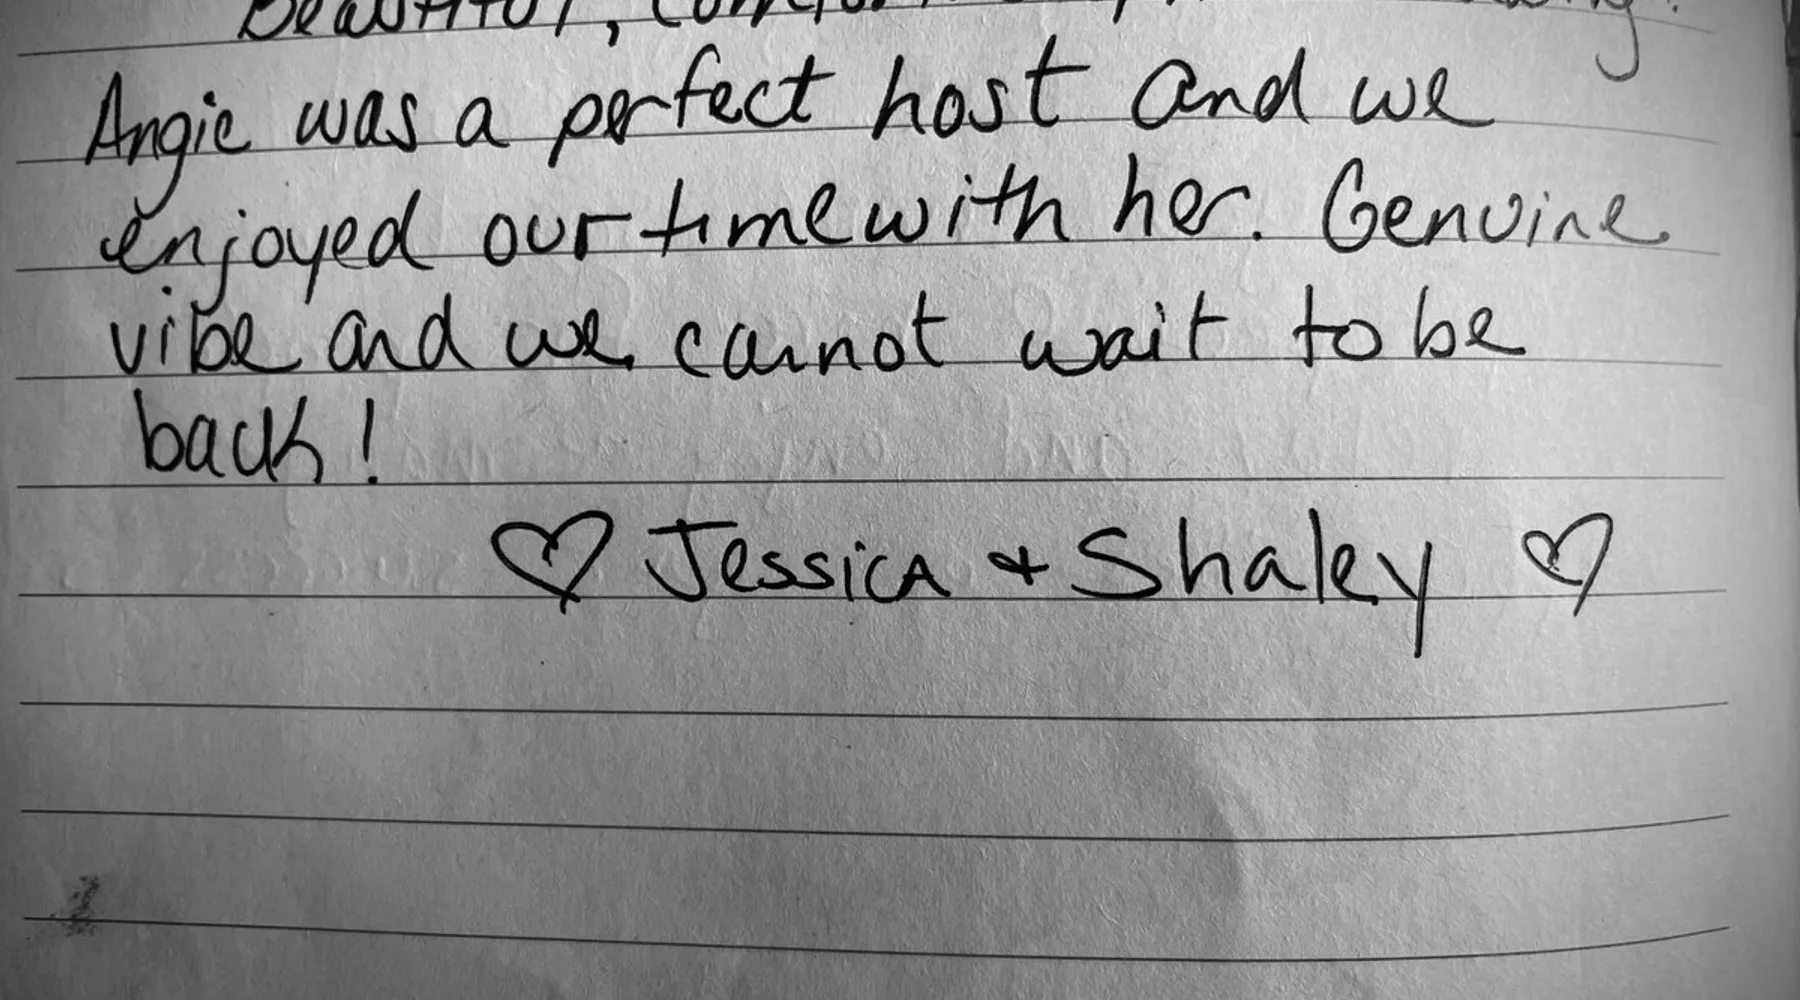 Beautiful,
Angie was a perfect host and we
enjoyed our time with her. Genuine
vibe and we cannot wait to be
back!
♡ Jessica + Shaley ♡